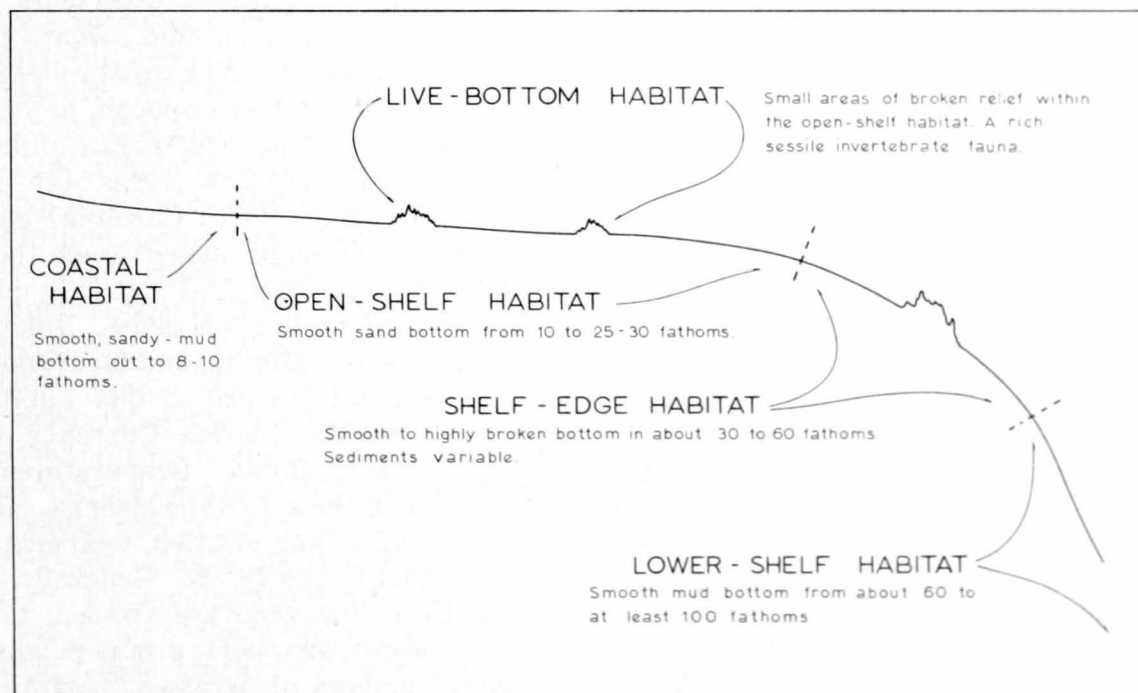 LIVE-BOTTOM HABITAT
Small areas of broken relief within
the open-shelf habitat. A rich
sessile invertebrate fauna.
COASTAL
HABITAT
Smooth, sandy-mud
bottom out to 8-10
fathoms.
OPEN-SHELF HABITAT
Smooth sand bottom from 10 to 25-30 fathoms.
SHELF-EDGE HABITAT
Smooth to highly broken bottom in about 30 to 60 fathoms.
Sediments variable.
LOWER-SHELF HABITAT
Smooth mud bottom from about 60 to
at least 100 fathoms